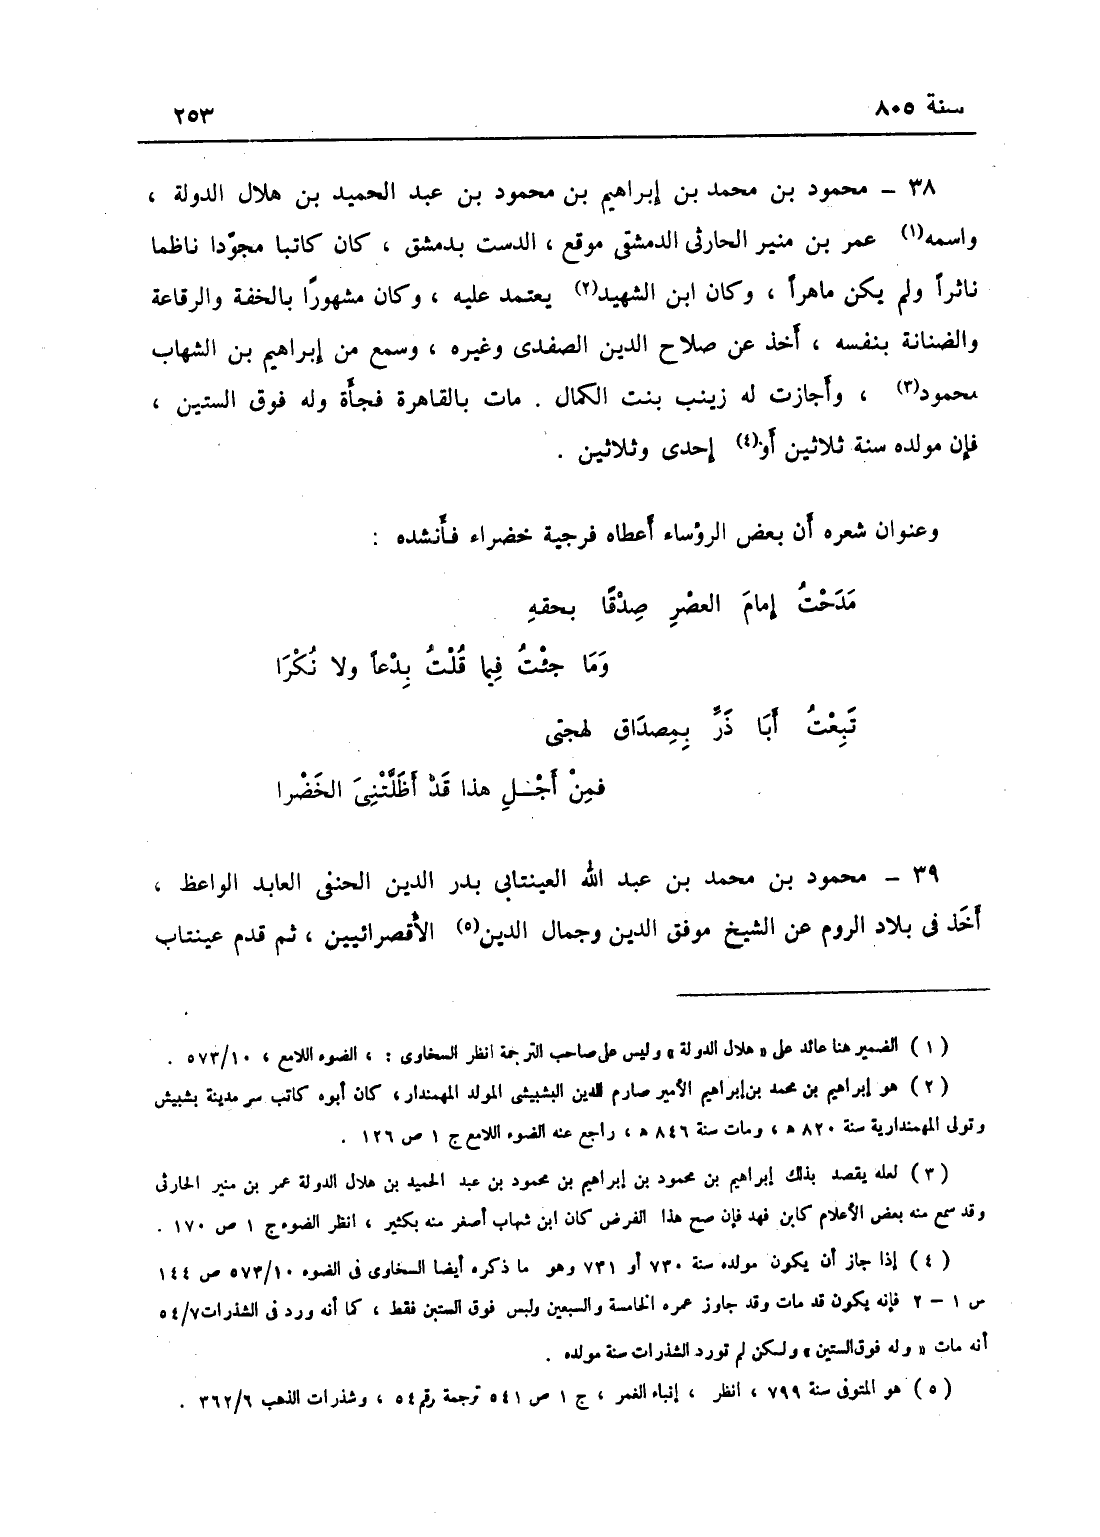 سنة ٨٠٥
٢٥٣
٣٨ – محمود بن محمد بن إبراهيم بن محمود بن عبد الحميد بن هلال الدولة ،
واسمه(١) عمر بن منير الحارثى الدمشقى موقع ، الدست بدمشق ، كان كاتبا مجوّدا ناظما
ناثراً ولم يكن ماهراً ، وكان ابن الشهيد(٢) يعتمد عليه ، وكان مشهورًا بالخفة والرقاعة
والضنانة بنفسه ، أخذ عن صلاح الدين الصفدى وغيره ، وسمع من إبراهيم بن الشهاب
محمود(٣) ، وأجازت له زينب بنت الكمال . مات بالقاهرة فجأة وله فوق الستين ،
فإن مولده سنة ثلاثين أو(٤) إحدى وثلاثين .
وعنوان شعره أن بعض الرؤساء أعطاه فرجية خضراء فأنشده :
مَدَحْتُ إمامَ العصْرِ صِدْقًا بحقهِ
وَمَا جئْتُ فِيما قُلْتُ بِدْعاً ولا نُكْرَا
تَبِعْتُ أَبَا ذَرٍّ بِمِصدَاق لهجتى
فمِنْ أَجْلِ هذا قَدْ أَظَلَّتْنِىَ الخَضْرا
٣٩ – محمود بن محمد بن عبد الله العينتابي بدر الدين الحنفى العابد الواعظ ،
أَخَذ فى بلاد الروم عن الشيخ موفق الدين وجمال الدين(٥) الأقصرائيين ، ثم قدم عينتاب
(١) الضمير هنا عائد على « هلال الدولة » وليس على صاحب الترجمة انظر السخاوى : ، الضوء اللامع ، ٥٧٣/١٠ .
(٢) هو إبراهيم بن محمد بن إبراهيم الأمير صارم الدين البشبيشى المولد المهمندار ، كان أبوه كاتب سر مدينة بشبيش
وتولى المهمندارية سنة ٨٢٠ ه ، ومات سنة ٨٤٦ ه ، راجع عنه الضوء اللامع ج ١ ص ١٢٦ .
(٣) لعله يقصد بذلك إبراهيم بن محمود بن إبراهيم بن محمود بن عبد الحميد بن هلال الدولة عمر بن منير الحارثى
وقد سمع منه بعض الأعلام كابن فهد فإن صح هذا الفرض كان ابن شهاب أصغر منه بكثير ، انظر الضوء ج ١ ص ١٧٠ .
(٤) إذا جاز أن يكون مولده سنة ٧٣٠ أو ٧٣١ وهو ما ذكره أيضا السخاوى فى الضوء ٥٧٣/١٠ ص ١٤٤
س ١ – ٢ فإنه يكون قد مات وقد جاوز عمره الخامسة والسبعين وليس فوق الستين فقط ، كما أنه ورد فى الشذرات ٥٤/٧
أنه مات « وله فوق الستين » ولكن لم تورد الشذرات سنة مولده .
(٥) هو المتوفى سنة ٧٩٩ ، انظر ، إنباء الغمر ، ج ١ ص ٥٤١ ترجمة رقم ٥٤ ، وشذرات الذهب ٣٦٢/٦ .